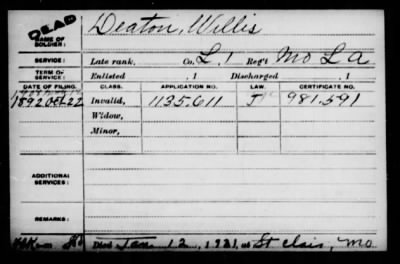 DEAD
Deaton, Willis
NAME OF SOLDIER:
SERVICE: Late rank, Co. L. 1 Reg't Mo L A
TERM OF SERVICE: Enlisted , 1 Discharged , 1
DATE OF FILING. CLASS. APPLICATION NO. LAW. CERTIFICATE NO.
1892 Oct 22 Invalid, 1135.611 981.591
Widow,
Minor,
ADDITIONAL SERVICES:
REMARKS:
Died Jan 12, 1921, at St Clair, Mo